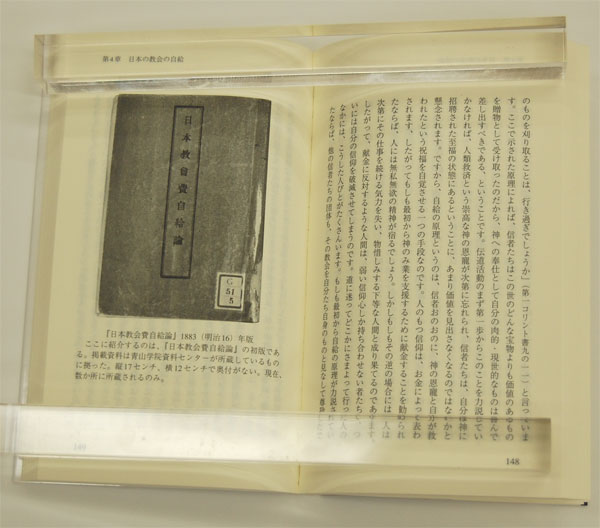 のものを刈り取ることは、行き過ぎでしょうか」(第一コリント書九の一一)と言っていま
す。ここで示された原理によれば、信者たちはこの世のどんな宝物よりも価値のあるもの
を贈物として受け取ったのだから、神への奉仕として自分の肉的・現世的なものは喜んで
差し出すべきである、ということです。伝道活動のまず第一歩からこのことを力説してい
かなければ、人類救済という崇高な神の恩寵が次第に忘れられ、信者たちは、自分は神に
招聘された至福の状態にあるということに、あまり価値を見出さなくなるのではないかと
懸念されます。ですから、自給の原理というのは、信者おのおのに、神の恩寵と自分が救
われたという祝福を自覚させる一つの手段なのです。人のもつ信仰は、お金によって表わ
されます。したがってもしも最初から神のみ業を支援するために献金することを勧められ
たならば、人には無私無欲の精神が宿るでしょう。しかしもしもその逆の場合には、人は
次第にその仕事を続ける気力を失い、物惜しみする下等な人間と成り果てるのであります。
したがって、献金に反対するような人間は、弱い信仰心しか持ち合わせない者たちで、つ
いには自分の信仰を破滅させてしまうのです。道に迷ってどこかにさまよって行った人の
なかには、こうした人びとがたくさんいます。もしも最初から自給の原理が力説されてい
たならば、他の信者たちの団体も、その教会を自分たち自身のものと見なして
148
第4章 日本の教会の自給
日本教會費自給論
G
51
5
『日本教会費自給論』1883(明治16)年版
ここに紹介するのは、『日本教会費自給論』の初版であ
る。掲載資料は青山学院資料センターが所蔵しているもの
に拠った。縦17センチ、横12センチで奥付がない。現在、
数か所に所蔵されるのみ。
149